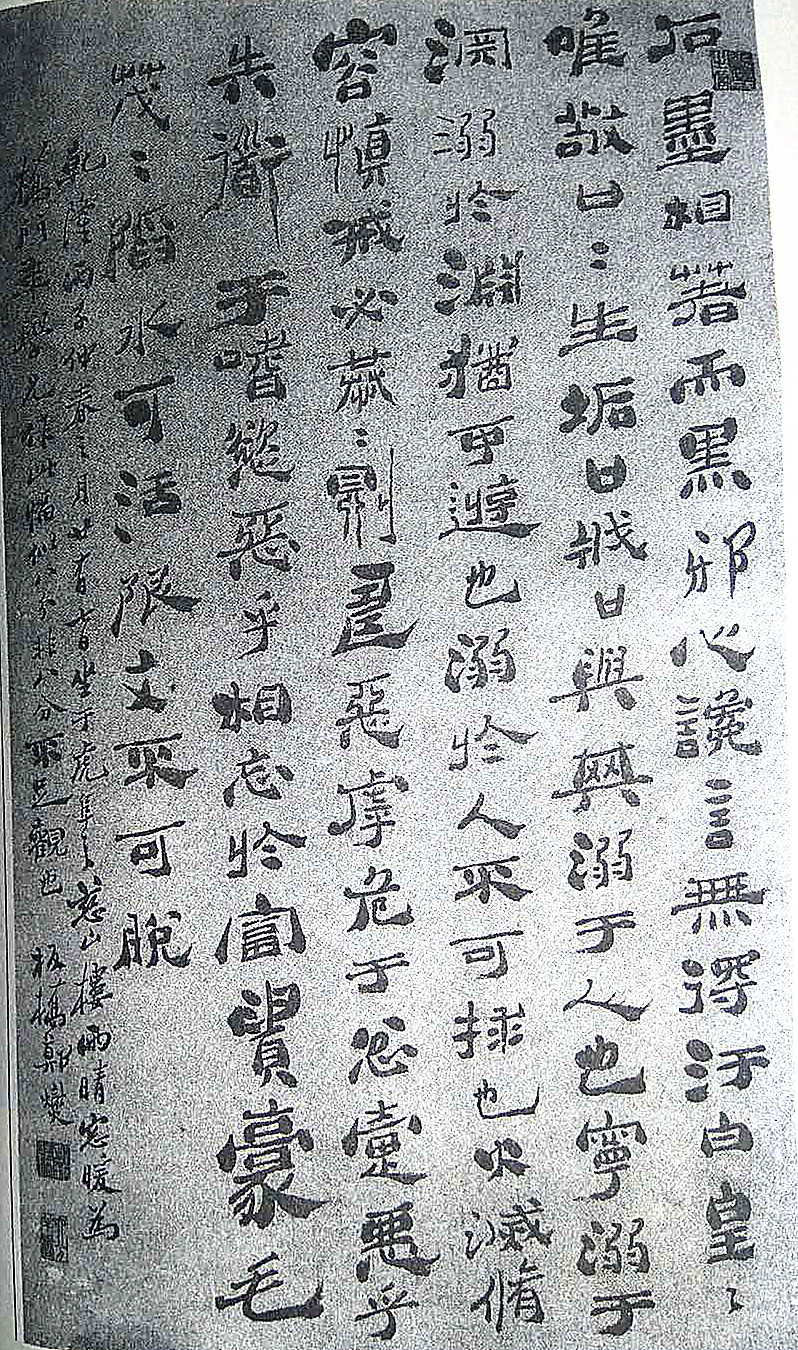 石墨相著而黑邪心讒言無得汙白皇〻
唯敬口〻生垢口戕口與其溺于人也寧溺于
淵溺於淵猶可遊也溺於人不可捄也火滅脩
容慎戒必恭〻則壽惡虖危于忿疐惡乎
失衟于嗜慾惡乎相忘於富貴豪毛
茂〻陷水可活陷文不可脫
乾隆丙子仲春之月廿有日坐于虎阜之山樓雨晴窗暖為
門年學兄作此幅似八分非八分不足觀也 板橋鄭燮